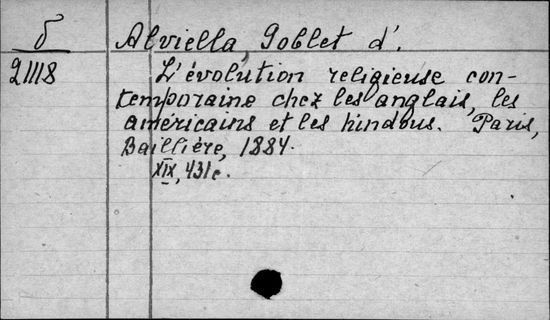 б Alviella, Goblet d'.
21118 L'évolution religieuse con-
temporaine chez les anglais, les
américains et les hindous. Paris,
Baillière, 1884.
XIX, 431 c.